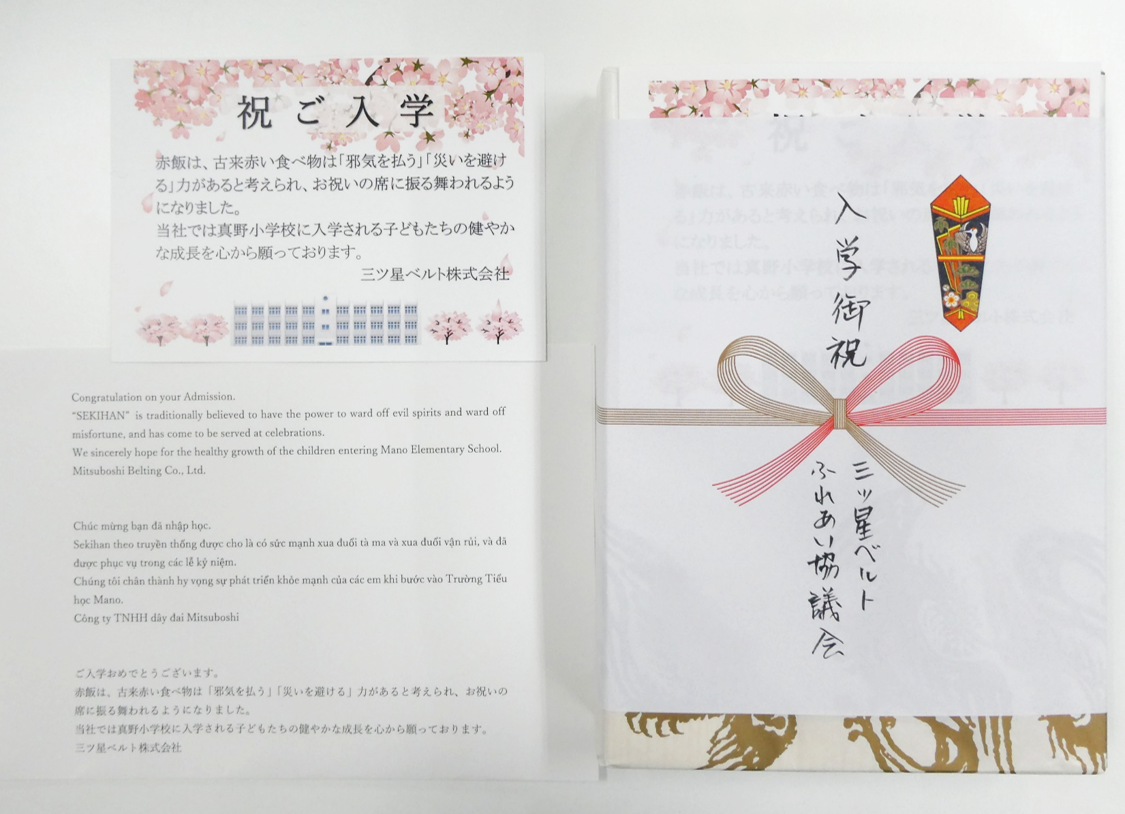 祝ご入学
赤飯は、古来赤い食べ物は「邪気を払う」「災いを避け
る」力があると考えられ、お祝いの席に振る舞われるよう
になりました。
当社では真野小学校に入学される子どもたちの健やか
な成長を心から願っております。
三ツ星ベルト株式会社
Congratulation on your Admission.
“SEKIHAN” is traditionally believed to have the power to ward off evil spirits and ward off
misfortune, and has come to be served at celebrations.
We sincerely hope for the healthy growth of the children entering Mano Elementary School.
Mitsuboshi Belting Co., Ltd.
Chúc mừng bạn đã nhập học.
Sekihan theo truyền thống được cho là có sức mạnh xua đuổi tà ma và xua đuổi vận rủi, và đã
được phục vụ trong các lễ kỷ niệm.
Chúng tôi chân thành hy vọng sự phát triển khỏe mạnh của các em khi bước vào Trường Tiểu
học Mano.
Công ty TNHH dây đai Mitsuboshi
ご入学おめでとうございます。
赤飯は、古来赤い食べ物は「邪気を払う」「災いを避ける」力があると考えられ、お祝いの
席に振る舞われるようになりました。
当社では真野小学校に入学される子どもたちの健やかな成長を心から願っております。
三ツ星ベルト株式会社
入学御祝
三ツ星ベルト
ふれあい協議会